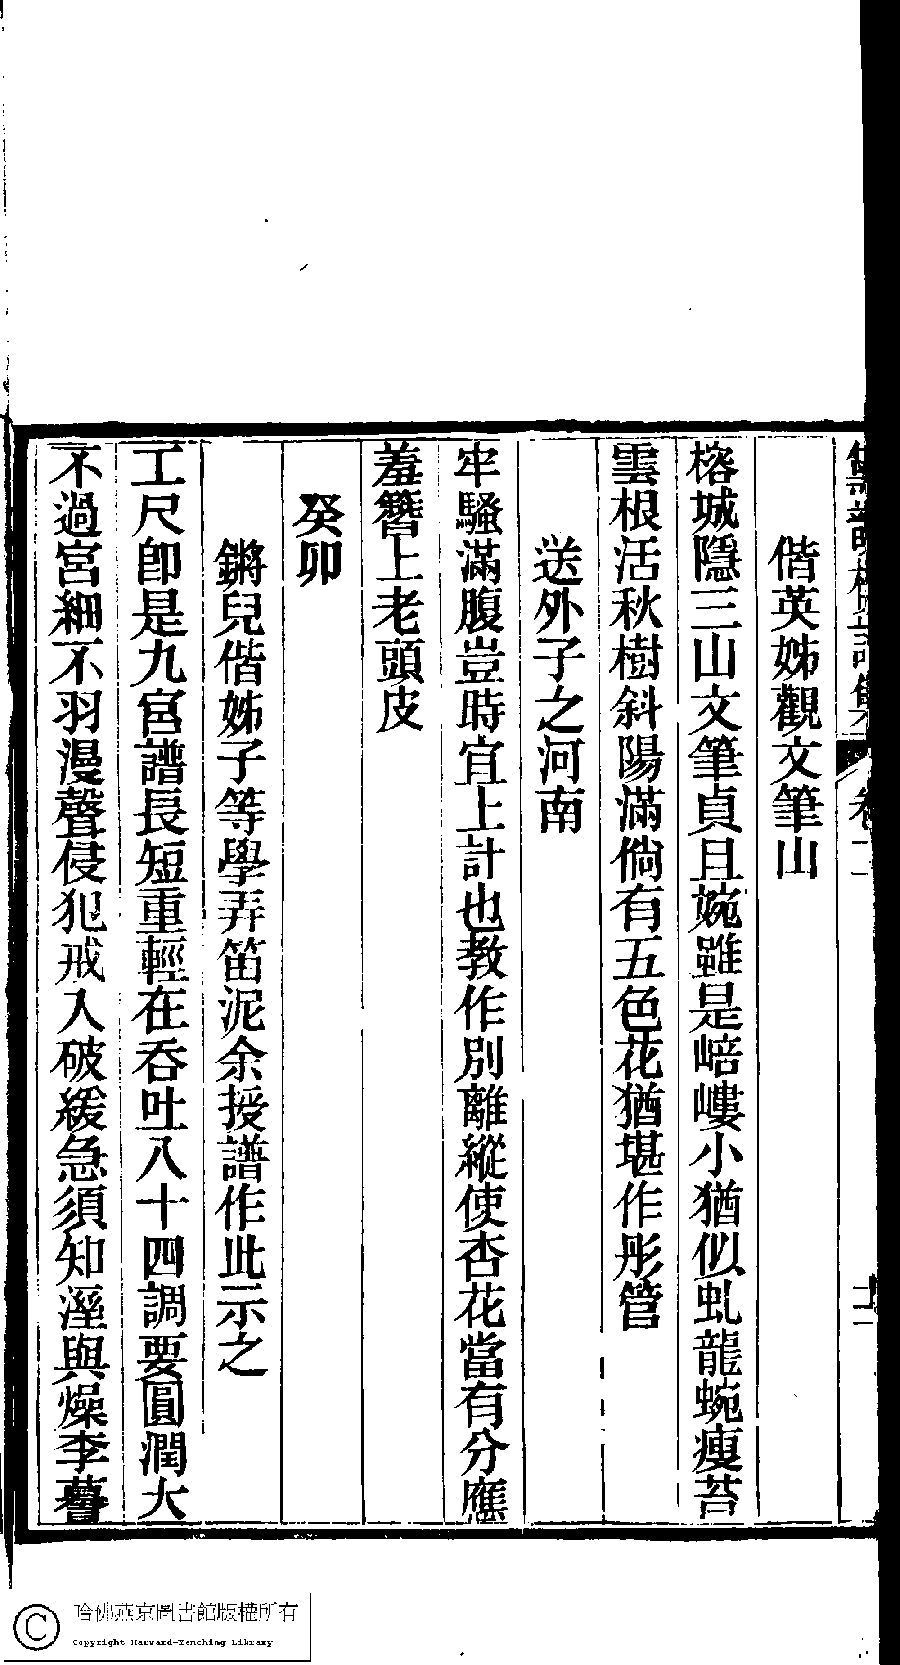 偕英姊觀文筆山
榕城隱三山文筆貞且婉雖是㟝嶁小猶似虬龍蜿瘦苔
雲根活秋樹斜陽滿倘有五色花猶堪作彤管
送外子之河南
牢騷滿腹豈時宜上計也教作別離縱使杏花當有分應
羞簪上老頭皮
癸卯
鏘兒偕姊子等學弄笛泥余授譜作此示之
工尺卽是九宮譜長短重輕在吞吐八十四調要圓潤大
不過宮細不羽漫聲侵犯戒入破緩急須知溼與燥李謩
哈佛燕京圖書館版權所有
Copyright Harvard-Yenching Library